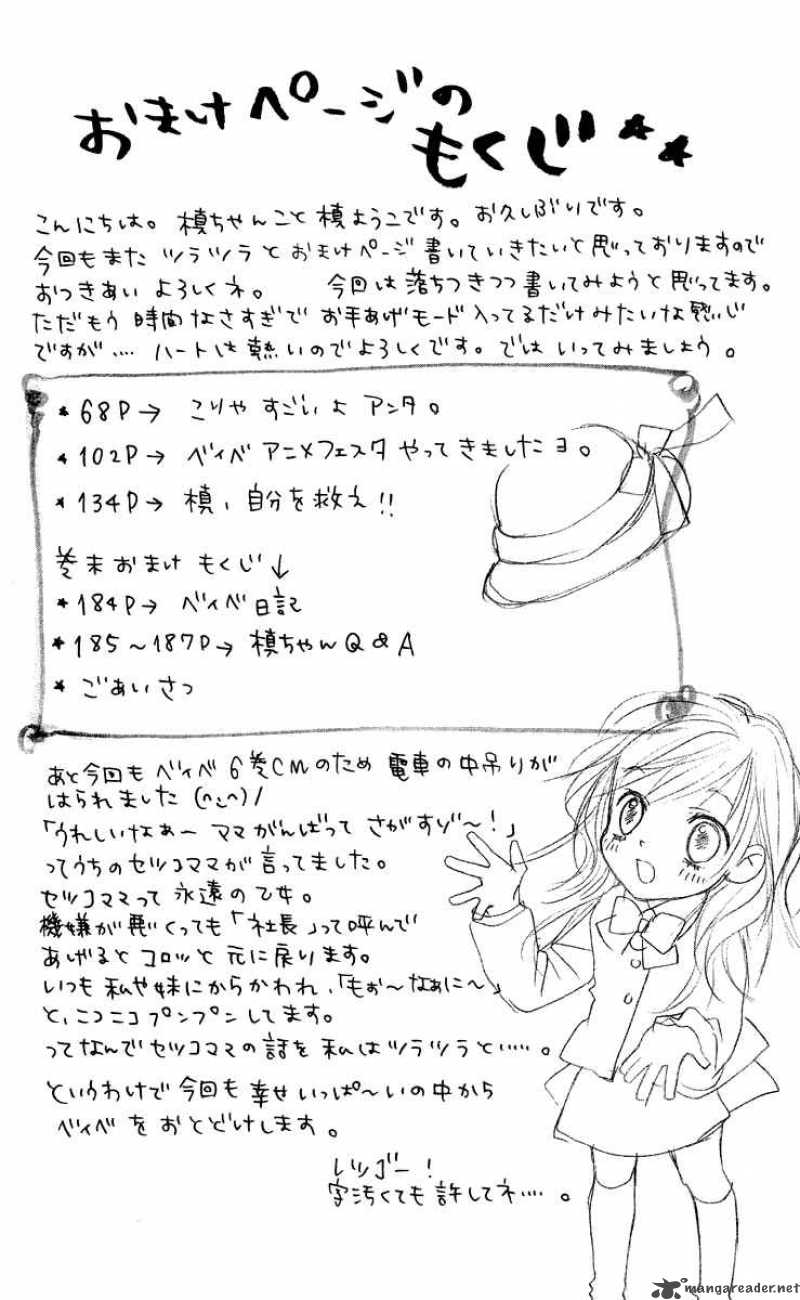 おまけページの
もくじ★★
こんにちは。槙ちゃんこと槙ようこです。お久しぶりです。
今回もまたツラツラとおまけページ書いていきたいと思っておりますので
おつきあいよろしくネ。 今回は落ちつきつつ書いてみようと思ってます。
ただもう時間なさすぎでお手あげモード入ってるだけみたいな感じ
ですが…. ハートは熱いのでよろしくです。ではいってみましょう。
★68P→ こりゃすごいよアンタ。
★102P→ ベイベアニメフェスタやってきましたヨ。
★134P→ 槙、自分を救え!!
巻末おまけもくじ↓
*184P→ ベイベ日記
*185～187P→ 槙ちゃんQ&A
* ごあいさつ
あと今回もベイベ6巻CMのため電車の中吊りが
はられました(∩◡∩)/
「うれしいなぁ～ママがんばってさがすゾ～!」
ってうちのセツコママが言ってました。
セツコママって永遠の乙女。
機嫌が悪くっても「社長」って呼んで
あげるとコロッと元に戻ります。
いつも私や妹にからかわれ、「もぉ～なぁに～」
と、ニコニコプンプンしてます。
ってなんでセツコママの話を私はツラツラと……。
というわけで今回も幸せいっぱ～いの中から
ベイベをおとどけします。
レッゴー!
字汚くても許してネ….。
mangareader.net